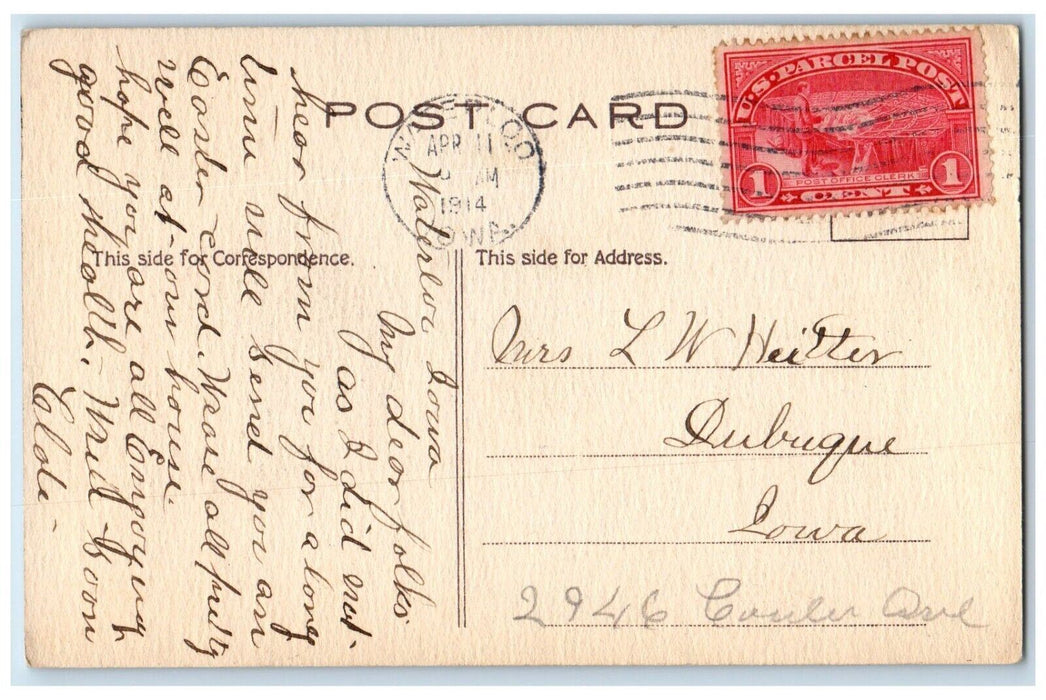 POST CARD
U.S. PARCEL POST
1
POST OFFICE CLERK
1
CENT
WATERLOO
APR 11
AM
1914
IOWA
This side for Correspondence.
This side for Address.
Waterloo Iowa
My dear folks
as I did not
hear from you for a long
time will send you an
Easter card. We are all pretty
well at our house.
hope you are all Enjoying
good health. Write Soon
Mrs L W Heitter
Dubuque
Iowa
2946 Ave